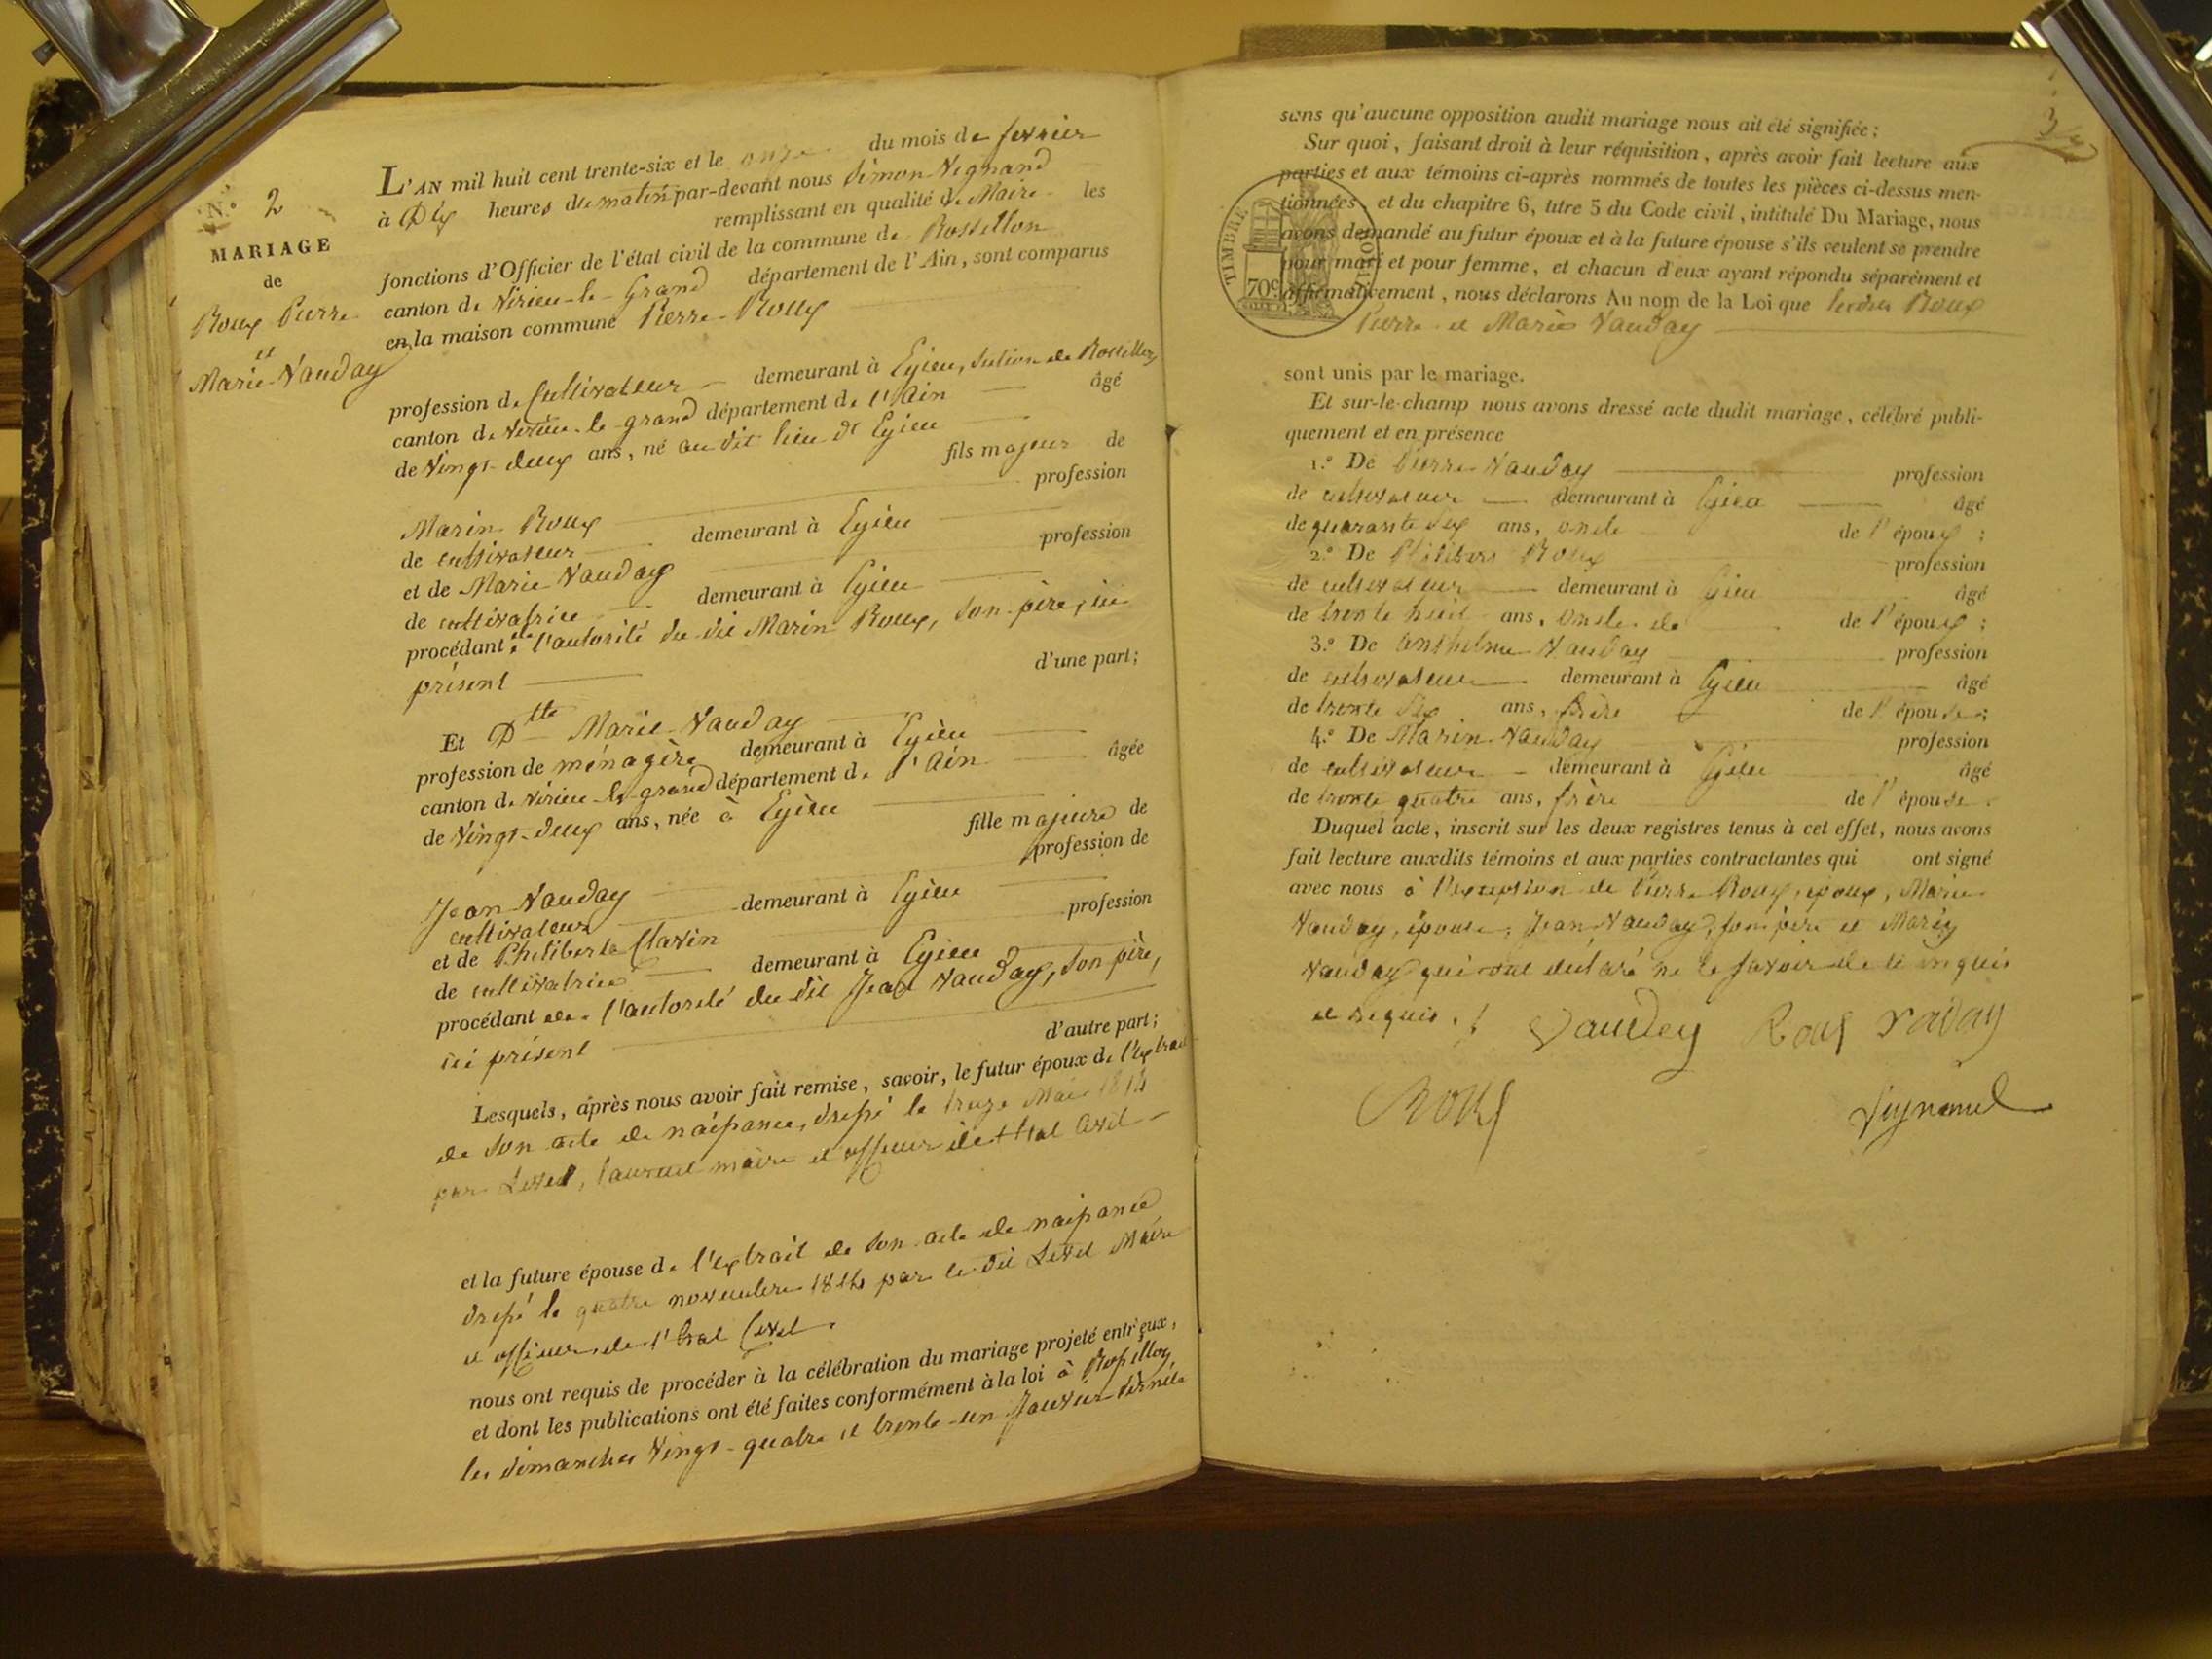 N.º 2
MARIAGE
de
Roux Pierre
et
Marie Vauday
L'AN mil huit cent trente-six et le onze du mois de fevrier
à Dix heures du matin par-devant nous Simon Vignand
remplissant en qualité de Maire les
fonctions d'Officier de l'état civil de la commune de Rossillon
canton de Virieu-le-Grand département de l'Ain, sont comparus
en la maison commune Pierre Roux
profession de Cultivateur demeurant à Egieu, Section de Rossillon
canton de Virieu-le-grand département de l'Ain âgé
de Vingt-deux ans, né au dit lieu d' Egieu
fils majeur de
profession
Marin Roux
de cultivateur demeurant à Egieu
et de Marie Vauday profession
de cultivatrice demeurant à Egieu
procédant de l'autorité du dit Marin Roux, son père, ici
présent
d'une part;
Et Dtte Marie Vauday
profession de ménagère demeurant à Egieu
canton de Virieu-le-grand département de l'Ain âgée
de Vingt-deux ans, née à Egieu
fille majeure de
profession de
Jean Vauday
cultivateur demeurant à Egieu
et de Philiberte Clavin profession
de cultivatrice demeurant à Egieu
procédant de l'autorité du dit Jean Vauday, son père,
ici présent
d'autre part;
Lesquels, après nous avoir fait remise, savoir, le futur époux de l'extrait
de son acte de naissance, dressé le treize Mai 1814
par Levet, Laurent maire et officier de l'Etat Civil
et la future épouse de l'extrait de son acte de naissance
dressé le quatre novembre 1814 par le dit Levet Maire
et officier de l'Etat Civil.
nous ont requis de procéder à la célébration du mariage projeté entr'eux,
et dont les publications ont été faites conformément à la loi à Rossillon
les dimanches Vingt-quatre et trente-un Janvier dernier
sans qu'aucune opposition audit mariage nous ait été signifiée;
Sur quoi, faisant droit à leur réquisition, après avoir fait lecture aux
parties et aux témoins ci-après nommés de toutes les pièces ci-dessus men-
tionnées, et du chapitre 6, titre 5 du Code civil, intitulé Du Mariage, nous
avons demandé au futur époux et à la future épouse s'ils veulent se prendre
pour mari et pour femme, et chacun d'eux ayant répondu séparément et
affirmativement, nous déclarons Au nom de la Loi que Roux
Pierre et Marie Vauday
TIMBRE ROYAL
70c
sont unis par le mariage.
Et sur-le-champ nous avons dressé acte dudit mariage, célébré publi-
quement et en présence
1.º De Pierre Vauday profession
de cultivateur demeurant à Egieu âgé
de quarante Six ans, oncle de l'époux;
2.º De Philibert Roux profession
de cultivateur demeurant à Egieu âgé
de trente huit ans, oncle de de l'époux;
3.º De Anthelme Vauday profession
de cultivateur demeurant à Egieu âgé
de trente Six ans, frère de l'épouse;
4.º De Marin Vauday profession
de cultivateur demeurant à Egieu âgé
de trente quatre ans, frère de l'épouse.
Duquel acte, inscrit sur les deux registres tenus à cet effet, nous avons
fait lecture auxdits témoins et aux parties contractantes qui ont signé
avec nous à l'exception de Pierre Roux, époux, Marie
Vauday, épouse, Jean Vauday, son père et Marin
Vauday qui ont déclaré ne le savoir de ce enquis
et requis.
Vaudey Roux Vaday
Roux
Vignand